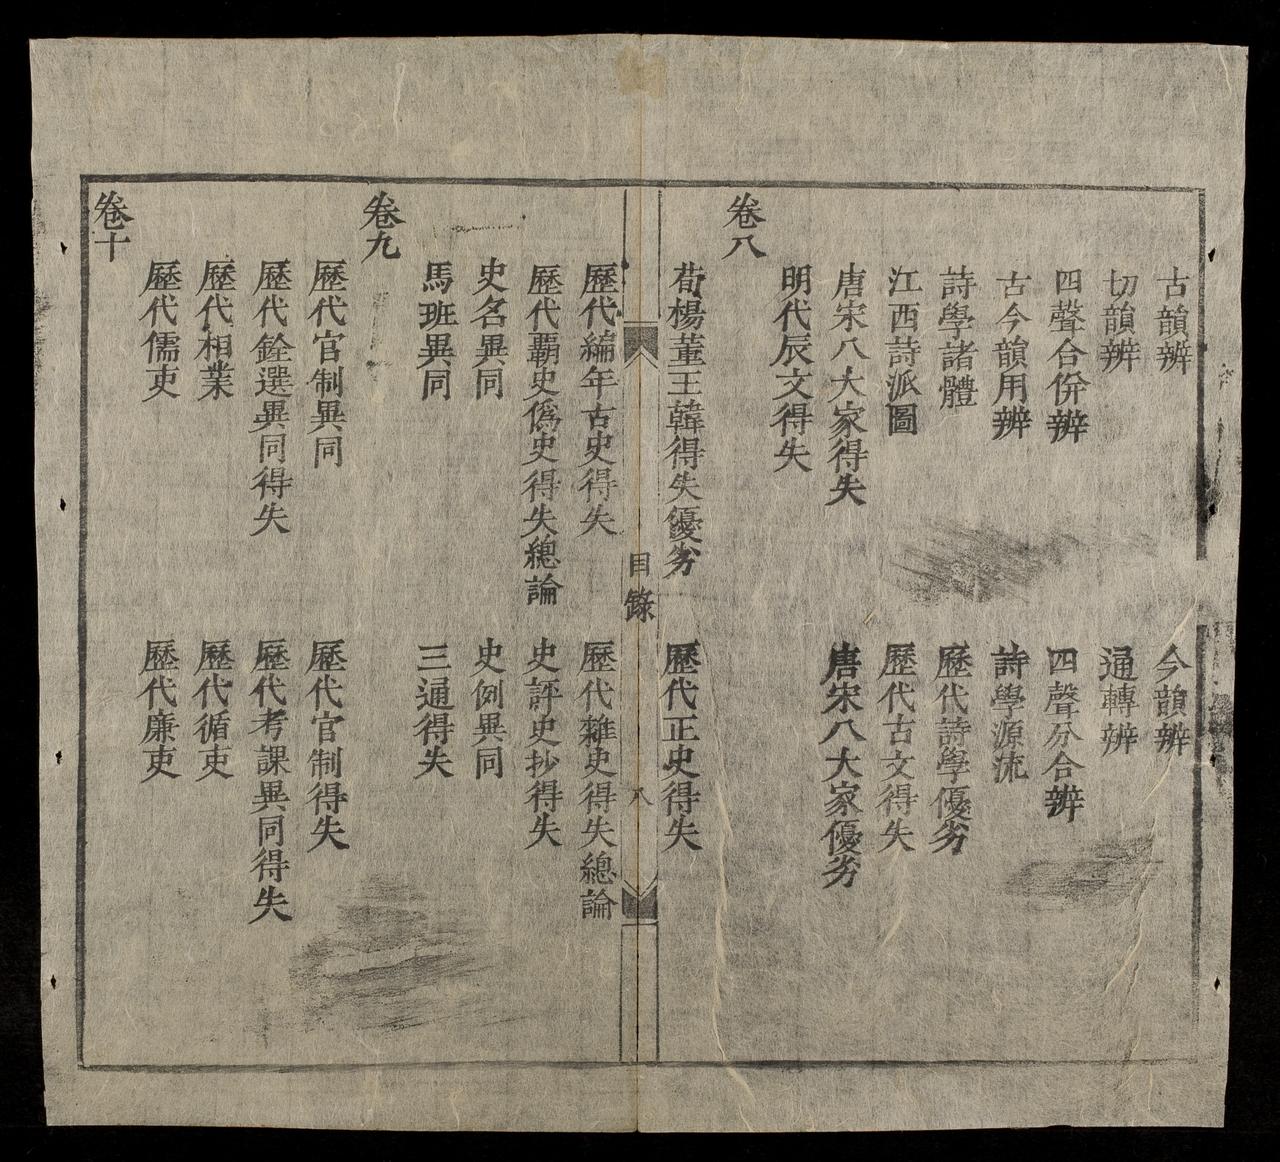 古韻辨　今韻辨
切韻辨　通轉辨
四聲合併辨　四聲分合辨
古今韻用辨　詩學源流
詩學諸體　歷代詩學優劣
江西詩派圖　歷代古文得失
唐宋八大家得失　唐宋八大家優劣
明代辰文得失
卷八
荀楊董王韓得失優劣　歷代正史得失
目錄　八
歷代編年古史得失　歷代雜史得失總論
歷代覇史僞史得失總論　史評史抄得失
史名異同　史例異同
馬班異同　三通得失
卷九
歷代官制異同　歷代官制得失
歷代銓選異同得失　歷代考課異同得失
歷代相業　歷代循吏
歷代儒吏　歷代廉吏
卷十